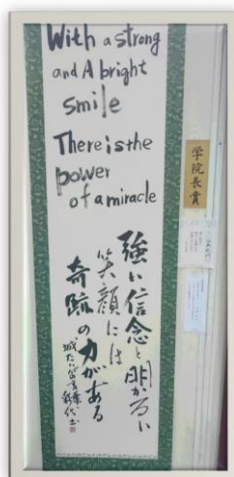 With a strong
and A bright
smile
There is the
power
of a miracle
強い信念と明かるい
笑顔には
奇跡の力がある
学院長賞